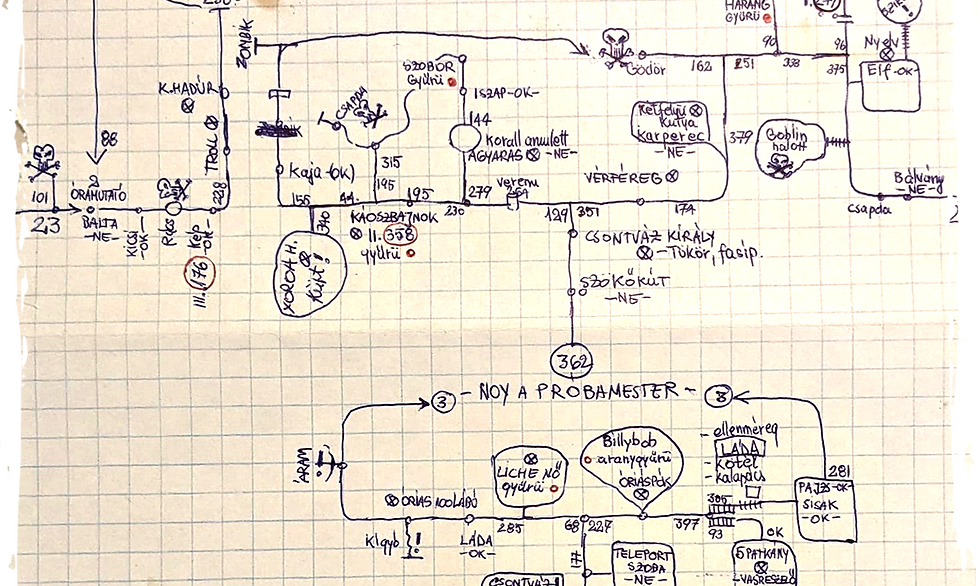 ZOMBIK
HARANG
GYŰRŰ
90
338
96
375
Nyelv
Elf-OK-
Gödör
162
251
K.HADÚR
CSAPDA
SZOBOR
Gyűrű
ISZAP-OK-
144
Korall amulett
AGYARAS -NE-
Kétfejű
Kutya
Karperec
-NE-
379
Goblin
halott
88
TROLL
Kaja-(OK)
315
195
VÉRFÉREG
Bálvány
-NE-
101
ÓRAMUTATÓ
23
BALTA
-NE-
KICSI
-OK-
Kép
-OK-
228
III. 176
155
340
KÁOSZBAJNOK
II. 358
gyűrű
195
230
279
Verem
129
351
174
Csapda
Kürt!
CSONTVÁZ KIRÁLY
-Tükör, fasip.
SZÖKŐKÚT
-NE-
362
3
- NOY A PROBAMESTER -
8
ÁRAM
LICHE NŐ
gyűrű
Billybob
aranygyűrű
ÓRIÁSPÓK
- ellenméreg
LÁDA
- kötél
- kalapács
281
PAJZS-OK-
SISAK
-OK-
ÓRIÁS
LÁDA
-OK-
285
68
227
397
305
93
OK
177
TELEPORT
SZOBA
-NE-
5 PATKÁNY
-VASRESZELŐ